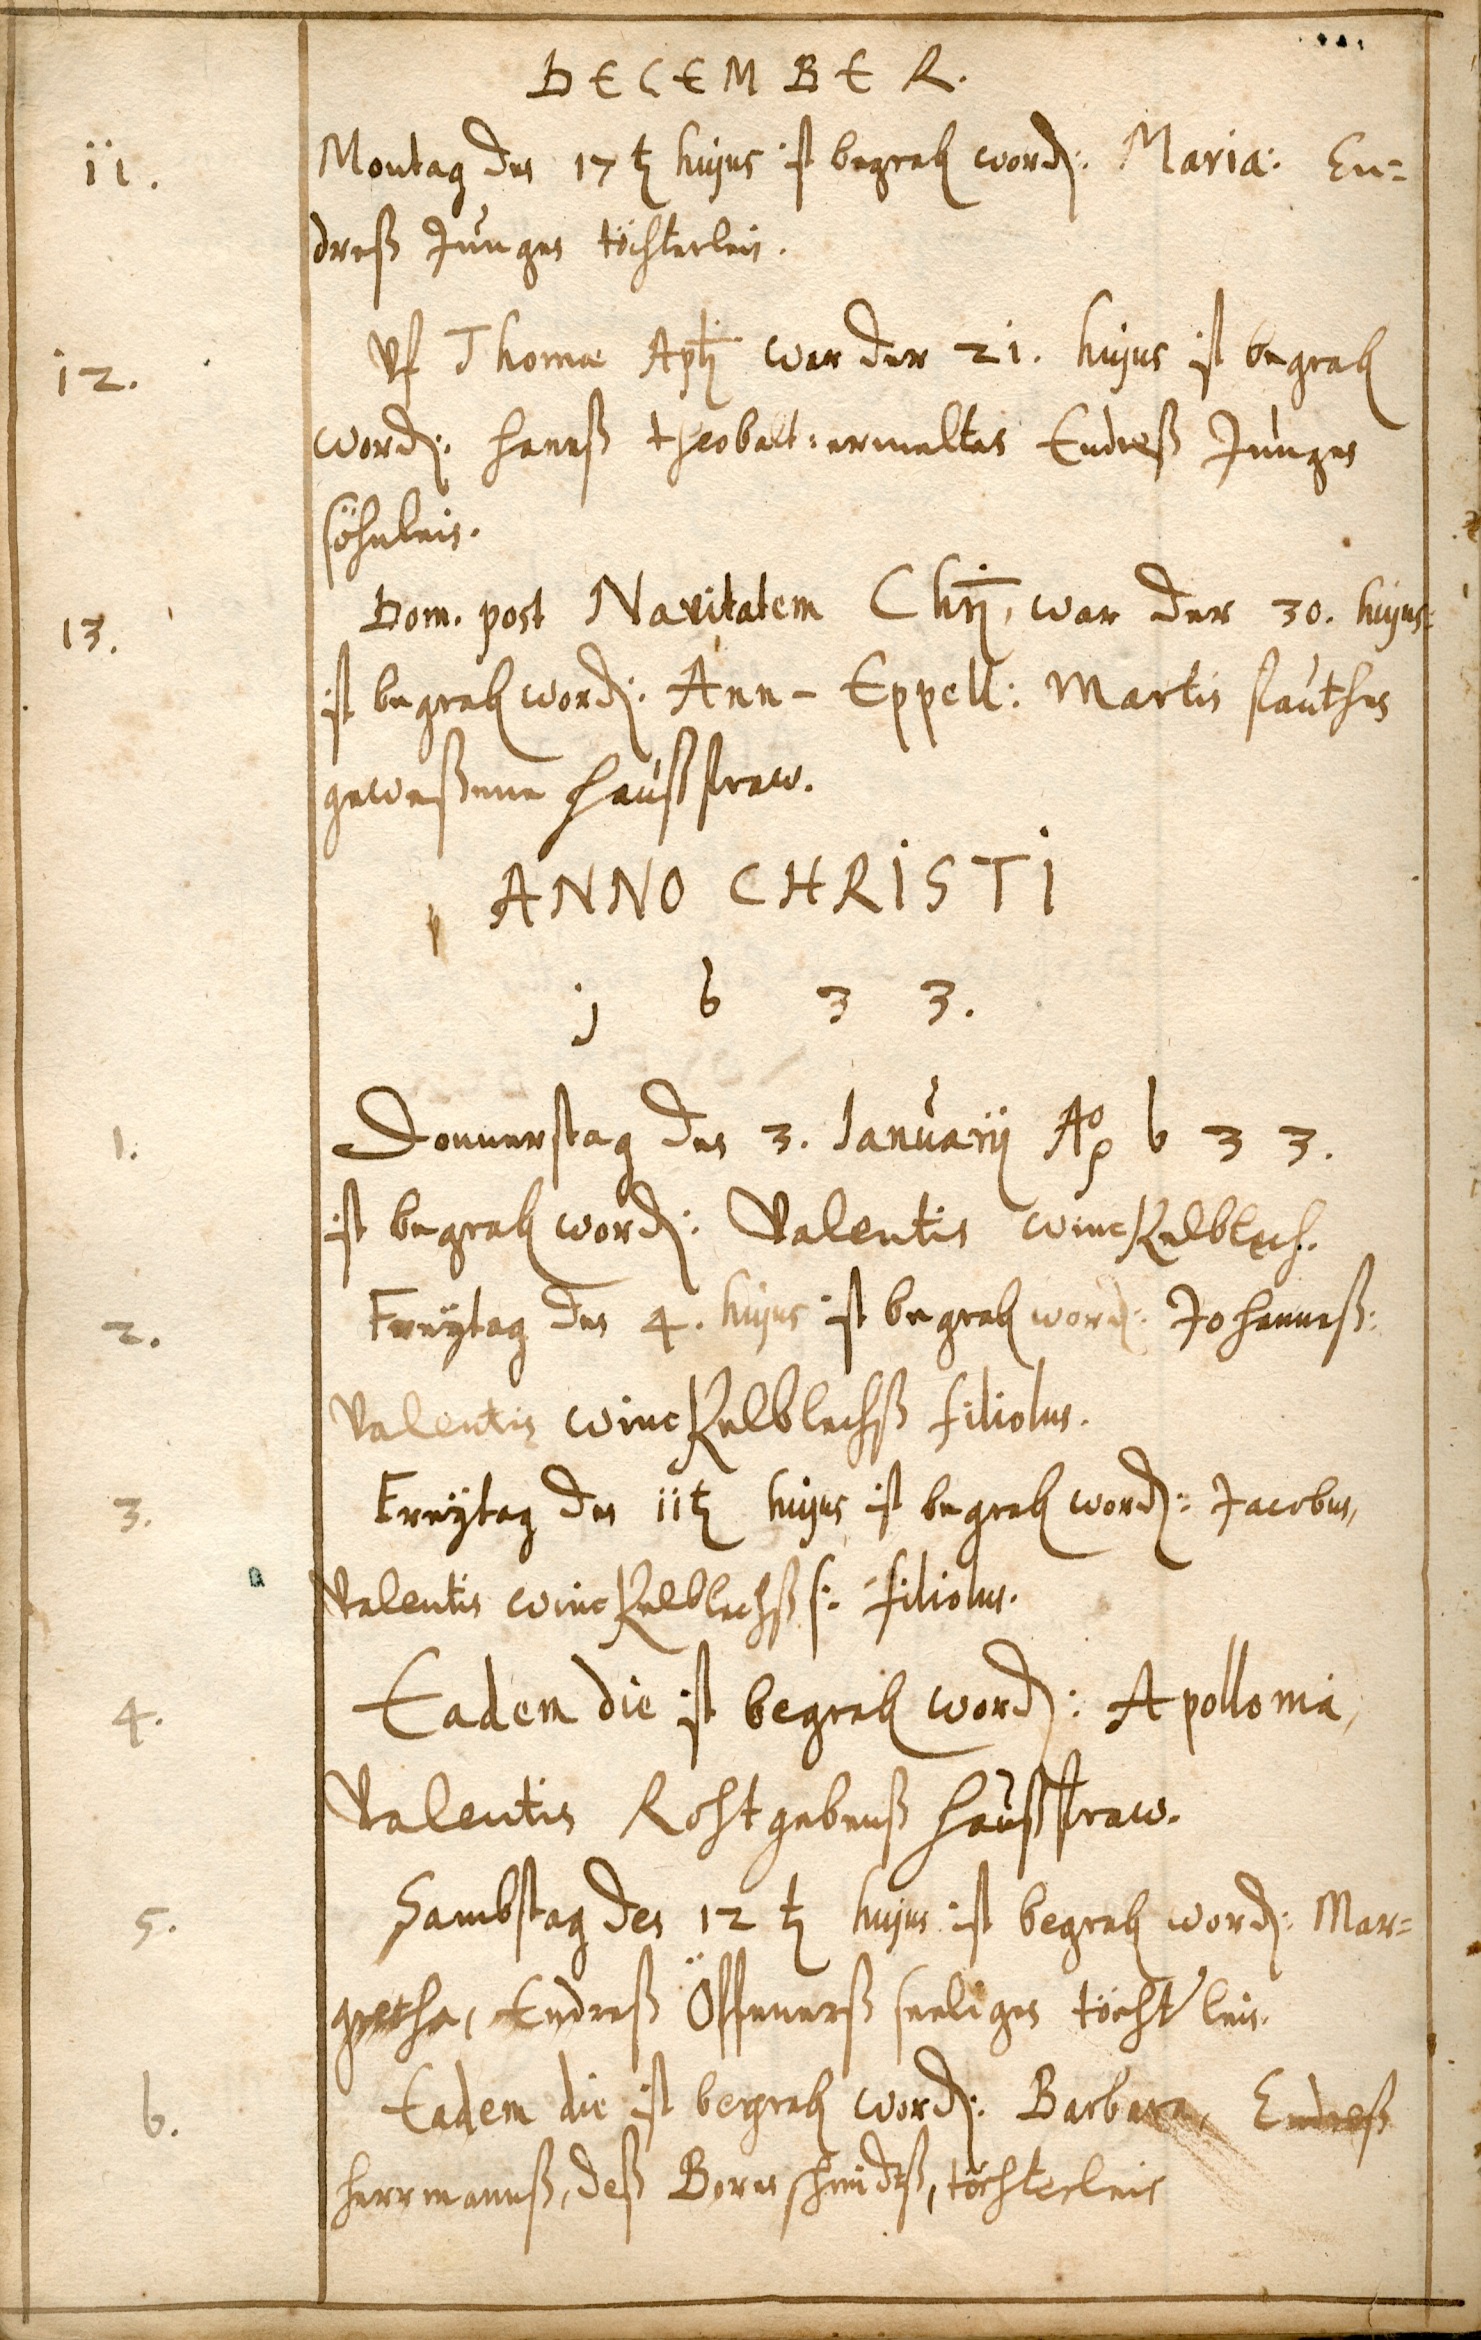 DECEMBER.
11. Montag den 17t hujus ist begrab word: Maria: En=
dreß Junges töchterlein.
12. Vf Thomæ Aptj war der 21. hujus ist begrab
word: Hanß Theobalt: ermeltes Endreß Junges
söhnlein.
13. Dom. post Navitatem Chrj, war der 30. hujus:
ist begrab word: Ann - Eppell: Martin
gewesene Haußfraw.
ANNO CHRISTI
j 6 3 3.
1. Donnerstag den 3. Januarij Ao 6 3 3.
ist begrab word: Valentin Winckelblech.
2. Freytag den 4. hujus ist begrab word: Johanneß:
Valentin Winckelblechß filiolus.
3. Freytag den 11t hujus ist begrab word: Jacobus,
Valentin Winckelblechß s: filiolus.
4. Eadem die ist begrab word: Apollonia,
Valentin Rohtgebenß Haußfraw.
5. Sambstag den 12 t hujus ist begrab word: Mar=
gretha, Endreß Öffenerß seeligen töchtlein.
6. Eadem die ist begrab word: Barbara, Endreß
Herrmannß, deß Bornschmidtß, töchterlein